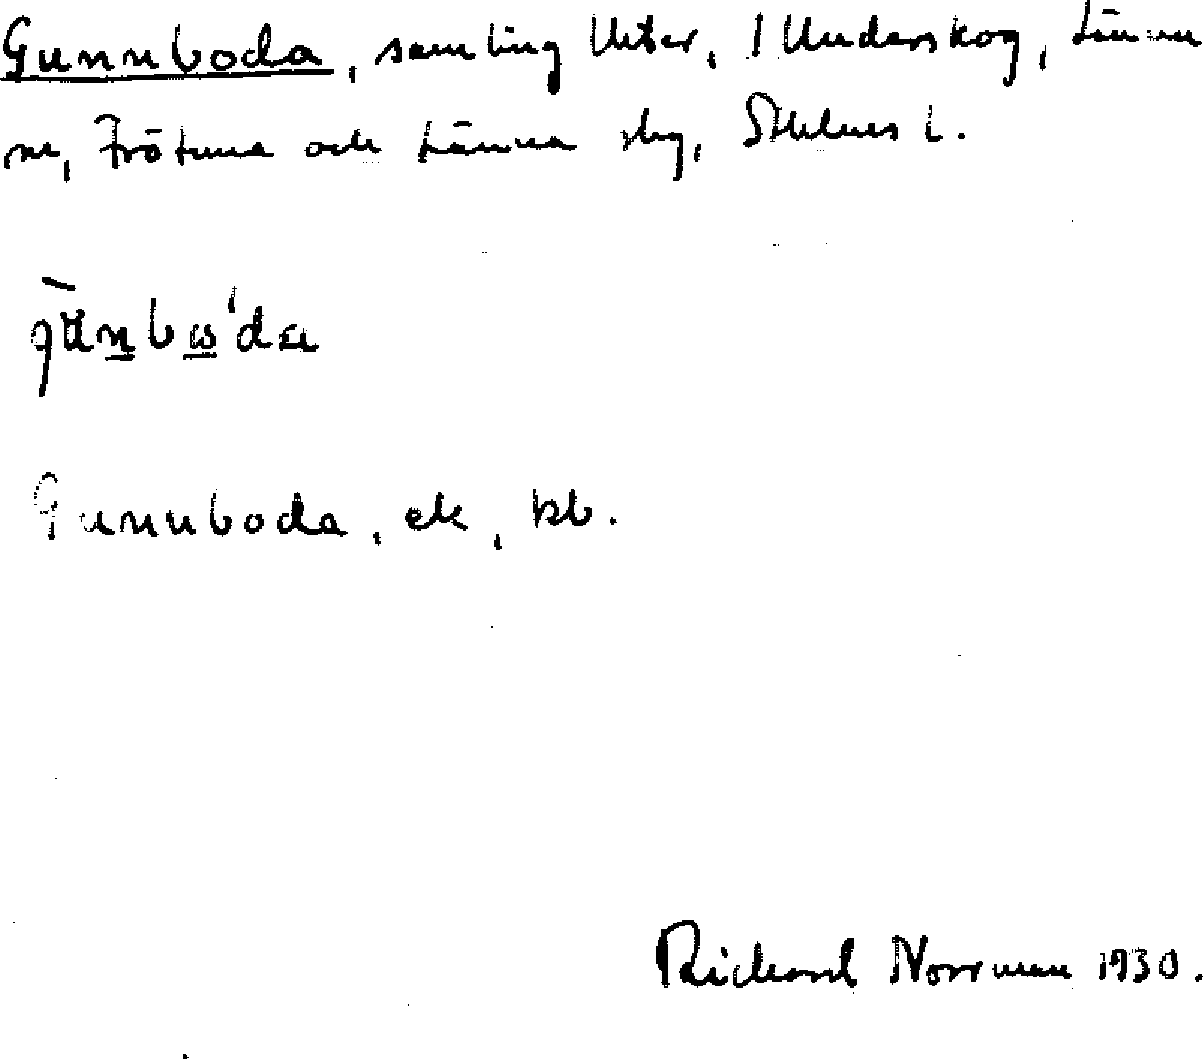 Gunnboda, samling lhter, i Underskog, Länna
sn, Frötuna och Länna slg, Sthlms l.
gùnbω'da
Gunnboda, ek, kb.
Richard Norrman 1930.